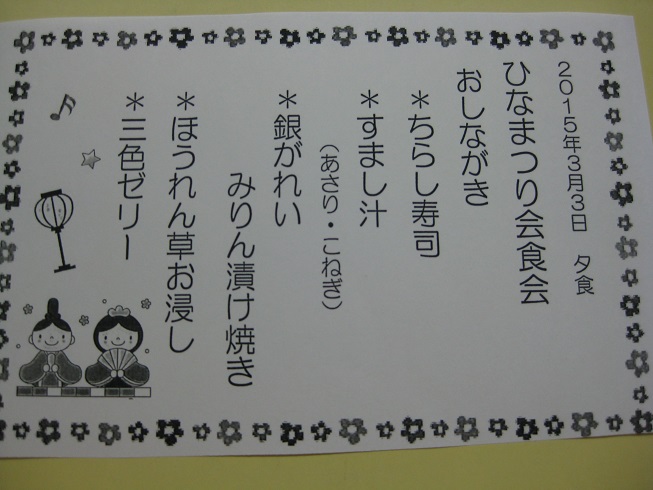 2015年3月3日　夕食
ひなまつり会食会
おしながき
＊ちらし寿司
＊すまし汁
（あさり・こねぎ）
＊銀がれい
みりん漬け焼き
＊ほうれん草お浸し
＊三色ゼリー